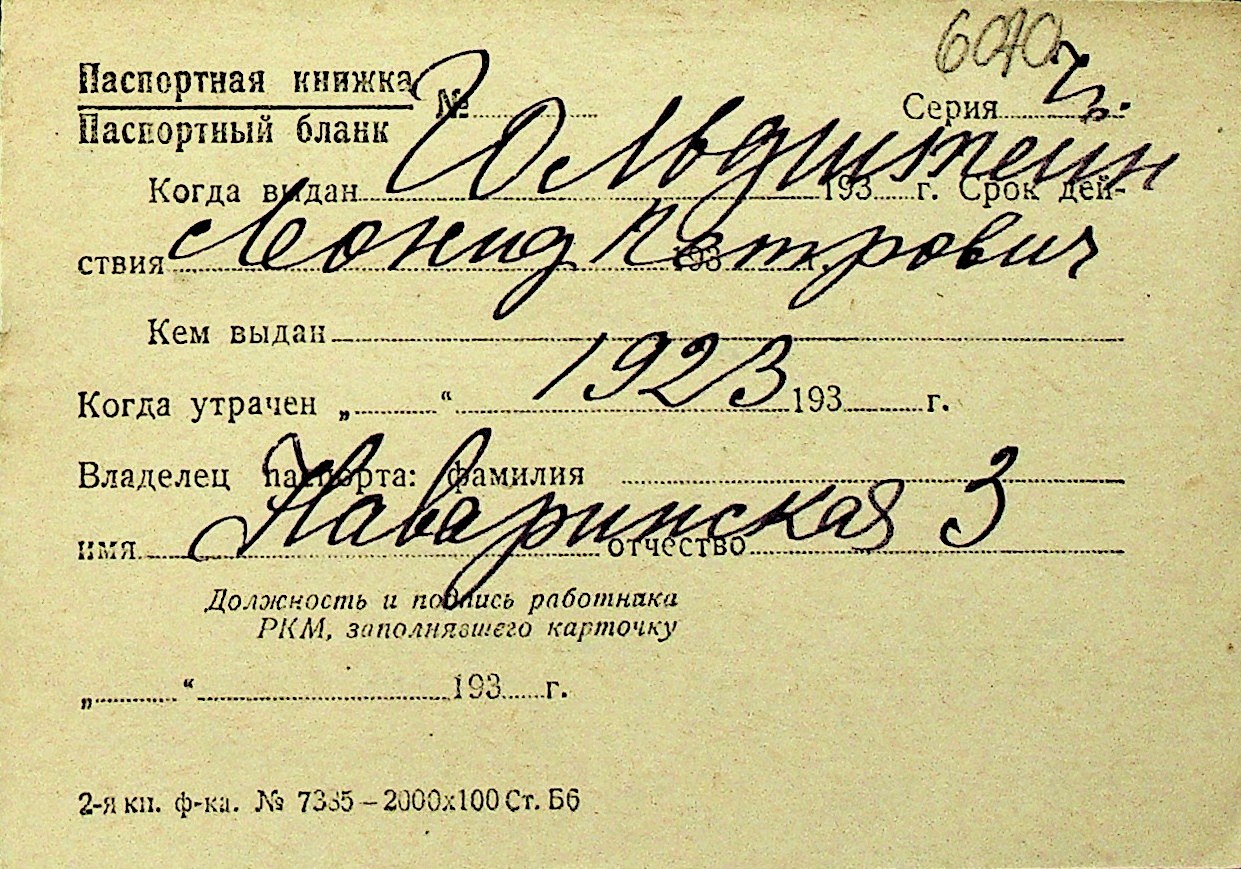 6070
Паспортная книжка
Паспортный бланк № Серия
Гольдштейн
Когда выдан 193 г. Срок дей-
ствия 193 г.
Леонид Петрович
Кем выдан
1923
Когда утрачен „ “ 193 г.
Владелец паспорта: фамилия
Наваринская 3
имя отчество
Должность и подпись работника
РКМ, заполнявшего карточку
„ “ 193 г.
2-я кн. ф-ка. № 7385–2000х100 Ст. Б6